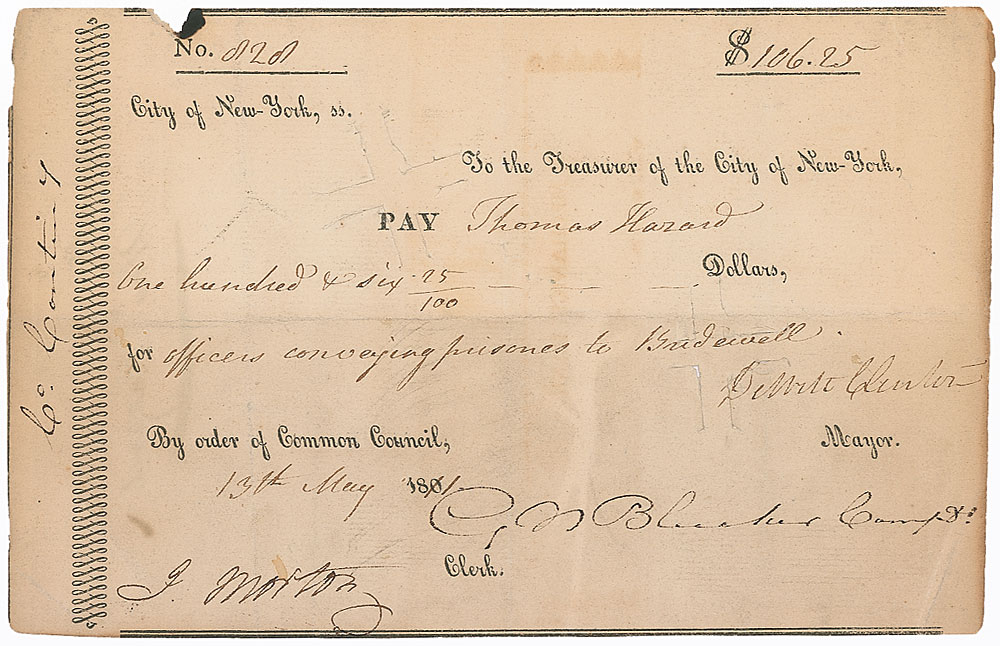 No. 828
$106.25
City of New-York, ss.
To the Treasurer of the City of New-York,
PAY Thomas Hazard
One hundred & six 25/100 Dollars,
for officers conveying prisones to Bridewell
DeWitt Clinton
Mayor.
By order of Common Council,
13th May 181
G N Bleecker Comp
J Morton
Clerk.
Co. Contin